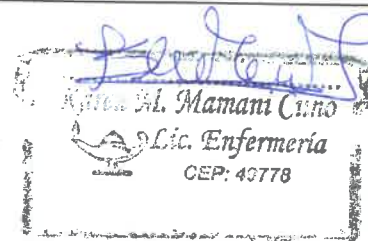 M. Mamani Cuno
Lic. Enfermería
CEP: 49778